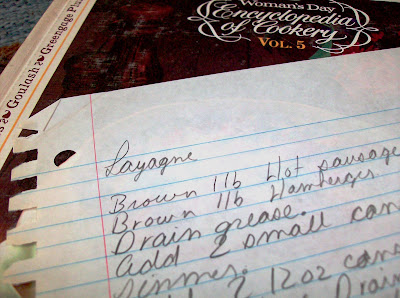 Woman's Day
Encyclopedia
of Cookery
VOL. 5
Goulash Greengage
Layagne
Brown 1 lb Hot sausage
Brown 1 lb Hamberger
Drain grease.
Add 2 small can
simmer.
2 12oz cans
Drain